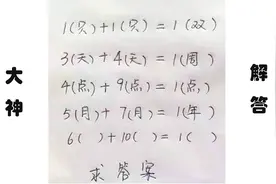 1(只)+1(只)=1(双)
3(天)+4(天)=1(周)
4(点)+9(点)=1(点)
5(月)+7(月)=1(年)
6( )+10( )=1( )
求答案
大神
解答